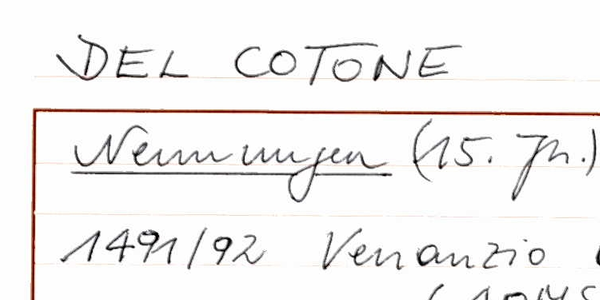 DEL COTONE
Nennungen (15. Jh.)
1491/92 Venanzio